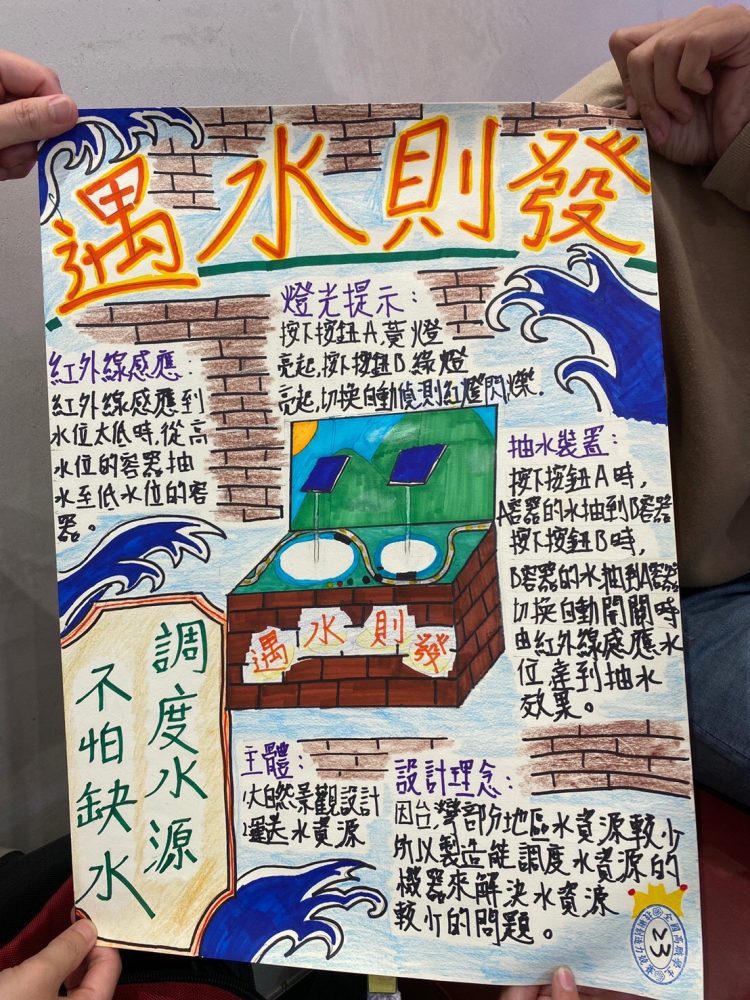 遇水則發
燈光提示:
按下按鈕A,黃燈
亮起,按下按鈕B,綠燈
亮起,切換自動偵測紅燈閃爍.
紅外線感應:
紅外線感應到
水位太低時,從高
水位的容器抽
水至低水位的容
器。
抽水裝置:
按下按鈕A時,
A容器的水抽到B容器
按下按鈕B時,
B容器的水抽到A容器
切換自動開關時
由紅外線感應水
位達到抽水
效果。
遇水則發
調度水源
不怕缺水
主體:
以大自然景觀設計
運送水資源
設計理念:
因台灣部分地區水資源較少
所以製造能調度水資源的
機器來解決水資源
較少的問題。